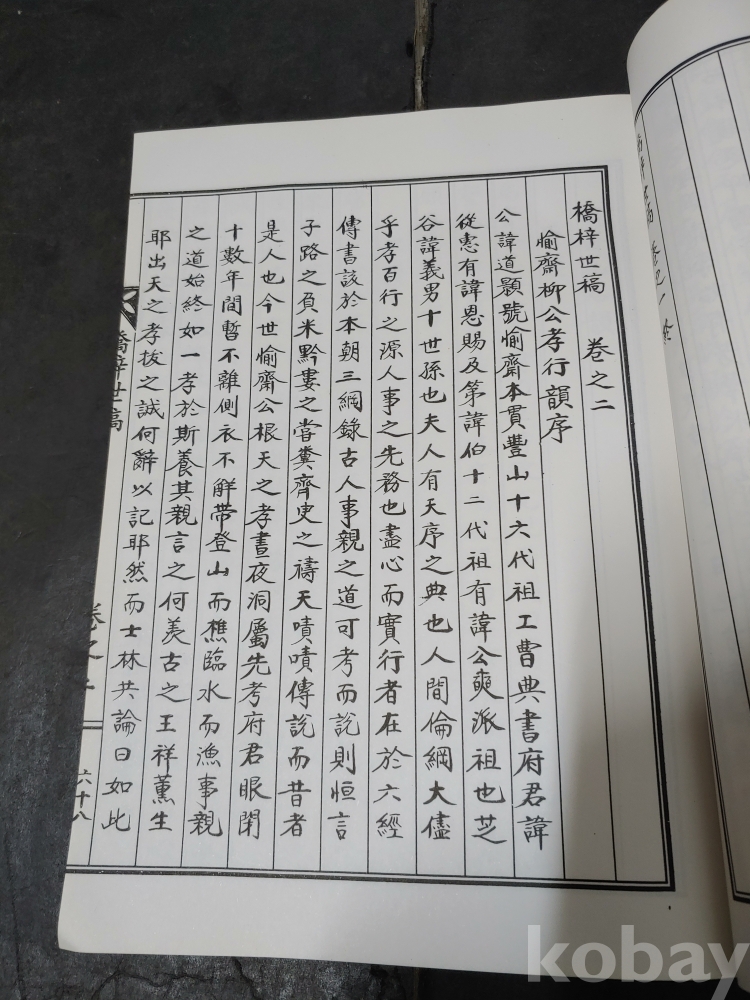 橋梓世稿 卷之二
愉齋柳公孝行韻序
公諱道顥號愉齋本貫豐山十六代祖工曹典書府君諱
從惠有諱恩賜及第諱伯十二代祖有諱公奭派祖也芝
谷諱義男十世孫也夫人有天序之典也人間倫綱大儘
乎孝百行之源人事之先務也盡心而實行者在於六經
傳書該於本朝三綱錄古人事親之道可考而說則恒言
子路之負米黔婁之甞糞齊叓之禱天嘖嘖傳說而昔者
是人也今世愉齋公根天之孝晝夜洞屬先考府君眼閉
十數年間暫不離側衣不解帶登山而樵臨水而漁事親
之道始終如一孝於斯養其親言之何羡古之王祥薰生
耶出天之孝拔之誠何辭以記耶然而士林共論曰如此
橋梓世稿 卷之二 六十八
kobay